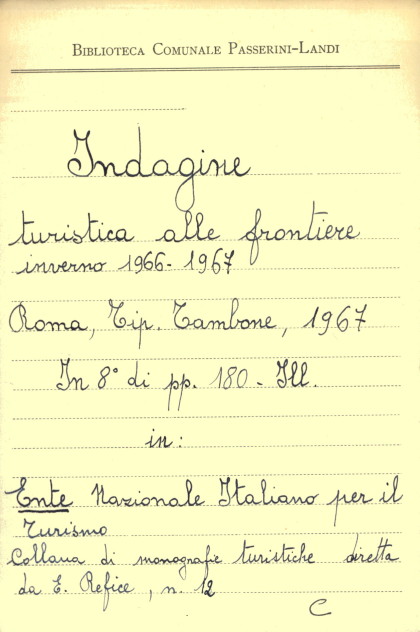 BIBLIOTECA COMUNALE PASSERINI-LANDI
Indagine
turistica alle frontiere
inverno 1966-1967
Roma, Tip. Tambone, 1967
In 8° di pp. 180 - Ill.
in:
Ente Nazionale Italiano per il
Turismo
Collana di monografie turistiche diretta
da E. Refice, n. 12
C